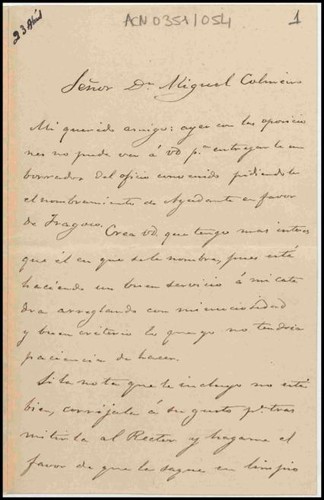 23 Abril
ACN0351/054
1
Señor Dn. Miguel Colmeiro
Mi querido amigo: ayer con las oposicio
nes no pude ver á Vd. pa. entregarle un
borrador del oficio convenido pidiendo
el nombramiento de Ayudante en favor
de Fragoso. Crea Vd. que tengo mas interes
que él en que se le nombre, pues está
haciendo un buen servicio á mi cate
dra arreglando con minuciosidad
y buen criterio lo que yo no tendria
paciencia de hacer.
Si la nota que le incluyo no está
bien, corríjala á su gusto pa. tras
mitirla al Rector y hagame el
favor de que la saque en limpio